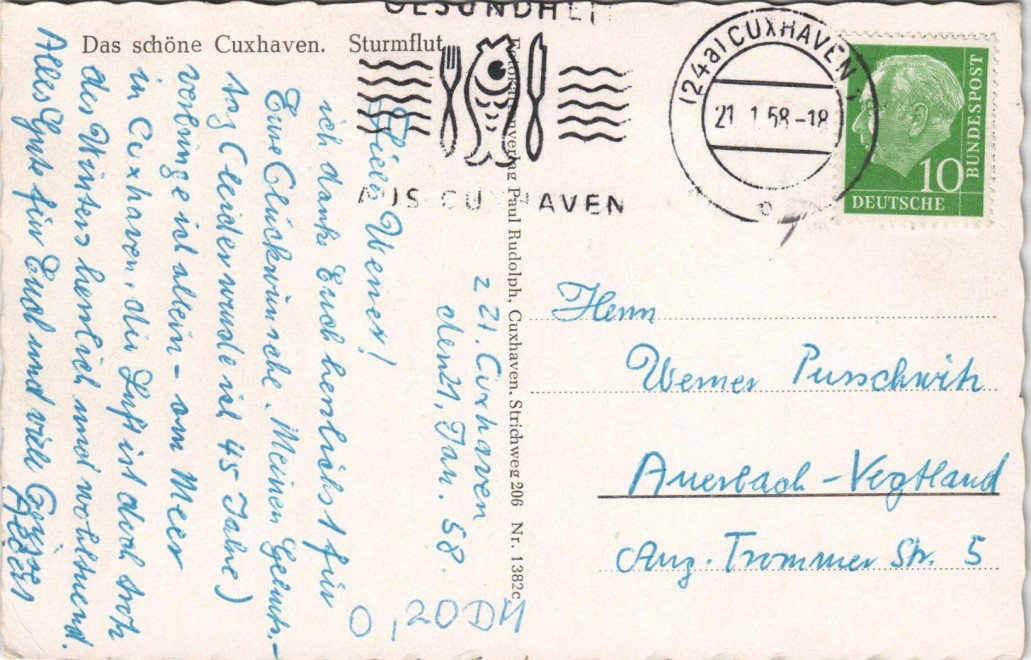 Das schöne Cuxhaven. Sturmflut
GESUNDHEIT
AUS CUXHAVEN
(24a) CUXHAVEN 1
21. 1. 58 - 18
BUNDESPOST
10
DEUTSCHE
Paul Rudolph, Cuxhaven, Strichweg 206 Nr. 1382c
z Zt. Cuxhaven
den 21. Jan. 58.
Liebe Werner!
ich danke Euch herzlichst für
Eure Glückwünsche. Meinen Geburts-
tag (leider wurde ich 45 Jahre)
verbringe ich allein - am Meer
in Cuxhaven, die Luft ist doch trotz
des Winters herrlich und wohltuend.
Alles Gute für Euch und viele Grüsse
Herrn
Werner
Auerbach - Vogtland
Aug. Trommer Str. 5
0,20 DM